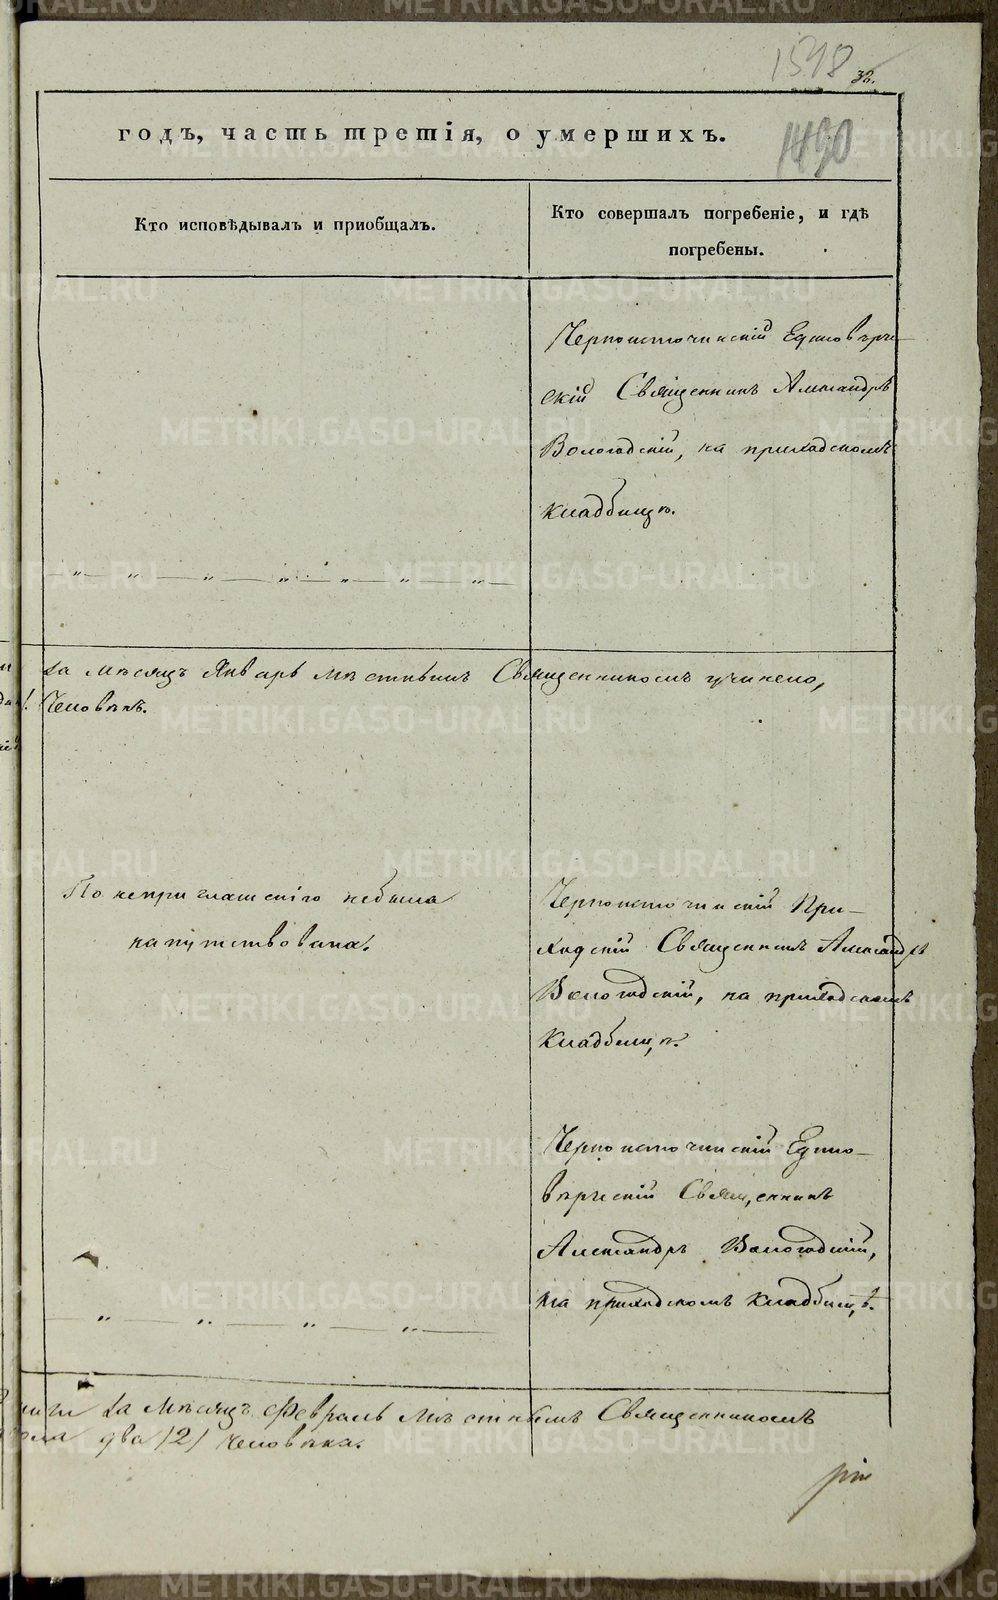 1548 32.
годъ, часть третія, о умершихъ. 1490
Кто исповѣдывалъ и пріобщалъ.
Кто совершалъ погребеніе, и гдѣ
погребены.
Черноисточинскій Единовѣрче-
скій Священникъ Александръ
Вологодскій, на приходскомъ
кладбищѣ.
за мѣсяцъ Январь мѣстнымъ Священникомъ учинено,
Человѣкъ.
По неприглашенію небыла
напутствована.
Черноисточинскій При-
ходскій Священникъ Александръ
Вологодскій, на приходскомъ
кладбищѣ.
Черноисточинскій Едино-
вѣрческій Священникъ
Александръ Вологодскій,
на приходскомъ кладбищѣ.
за мѣсяцъ Февраль мѣстнымъ Священникомъ
два /2/ человѣка.
METRIKI.GASO-URAL.RU